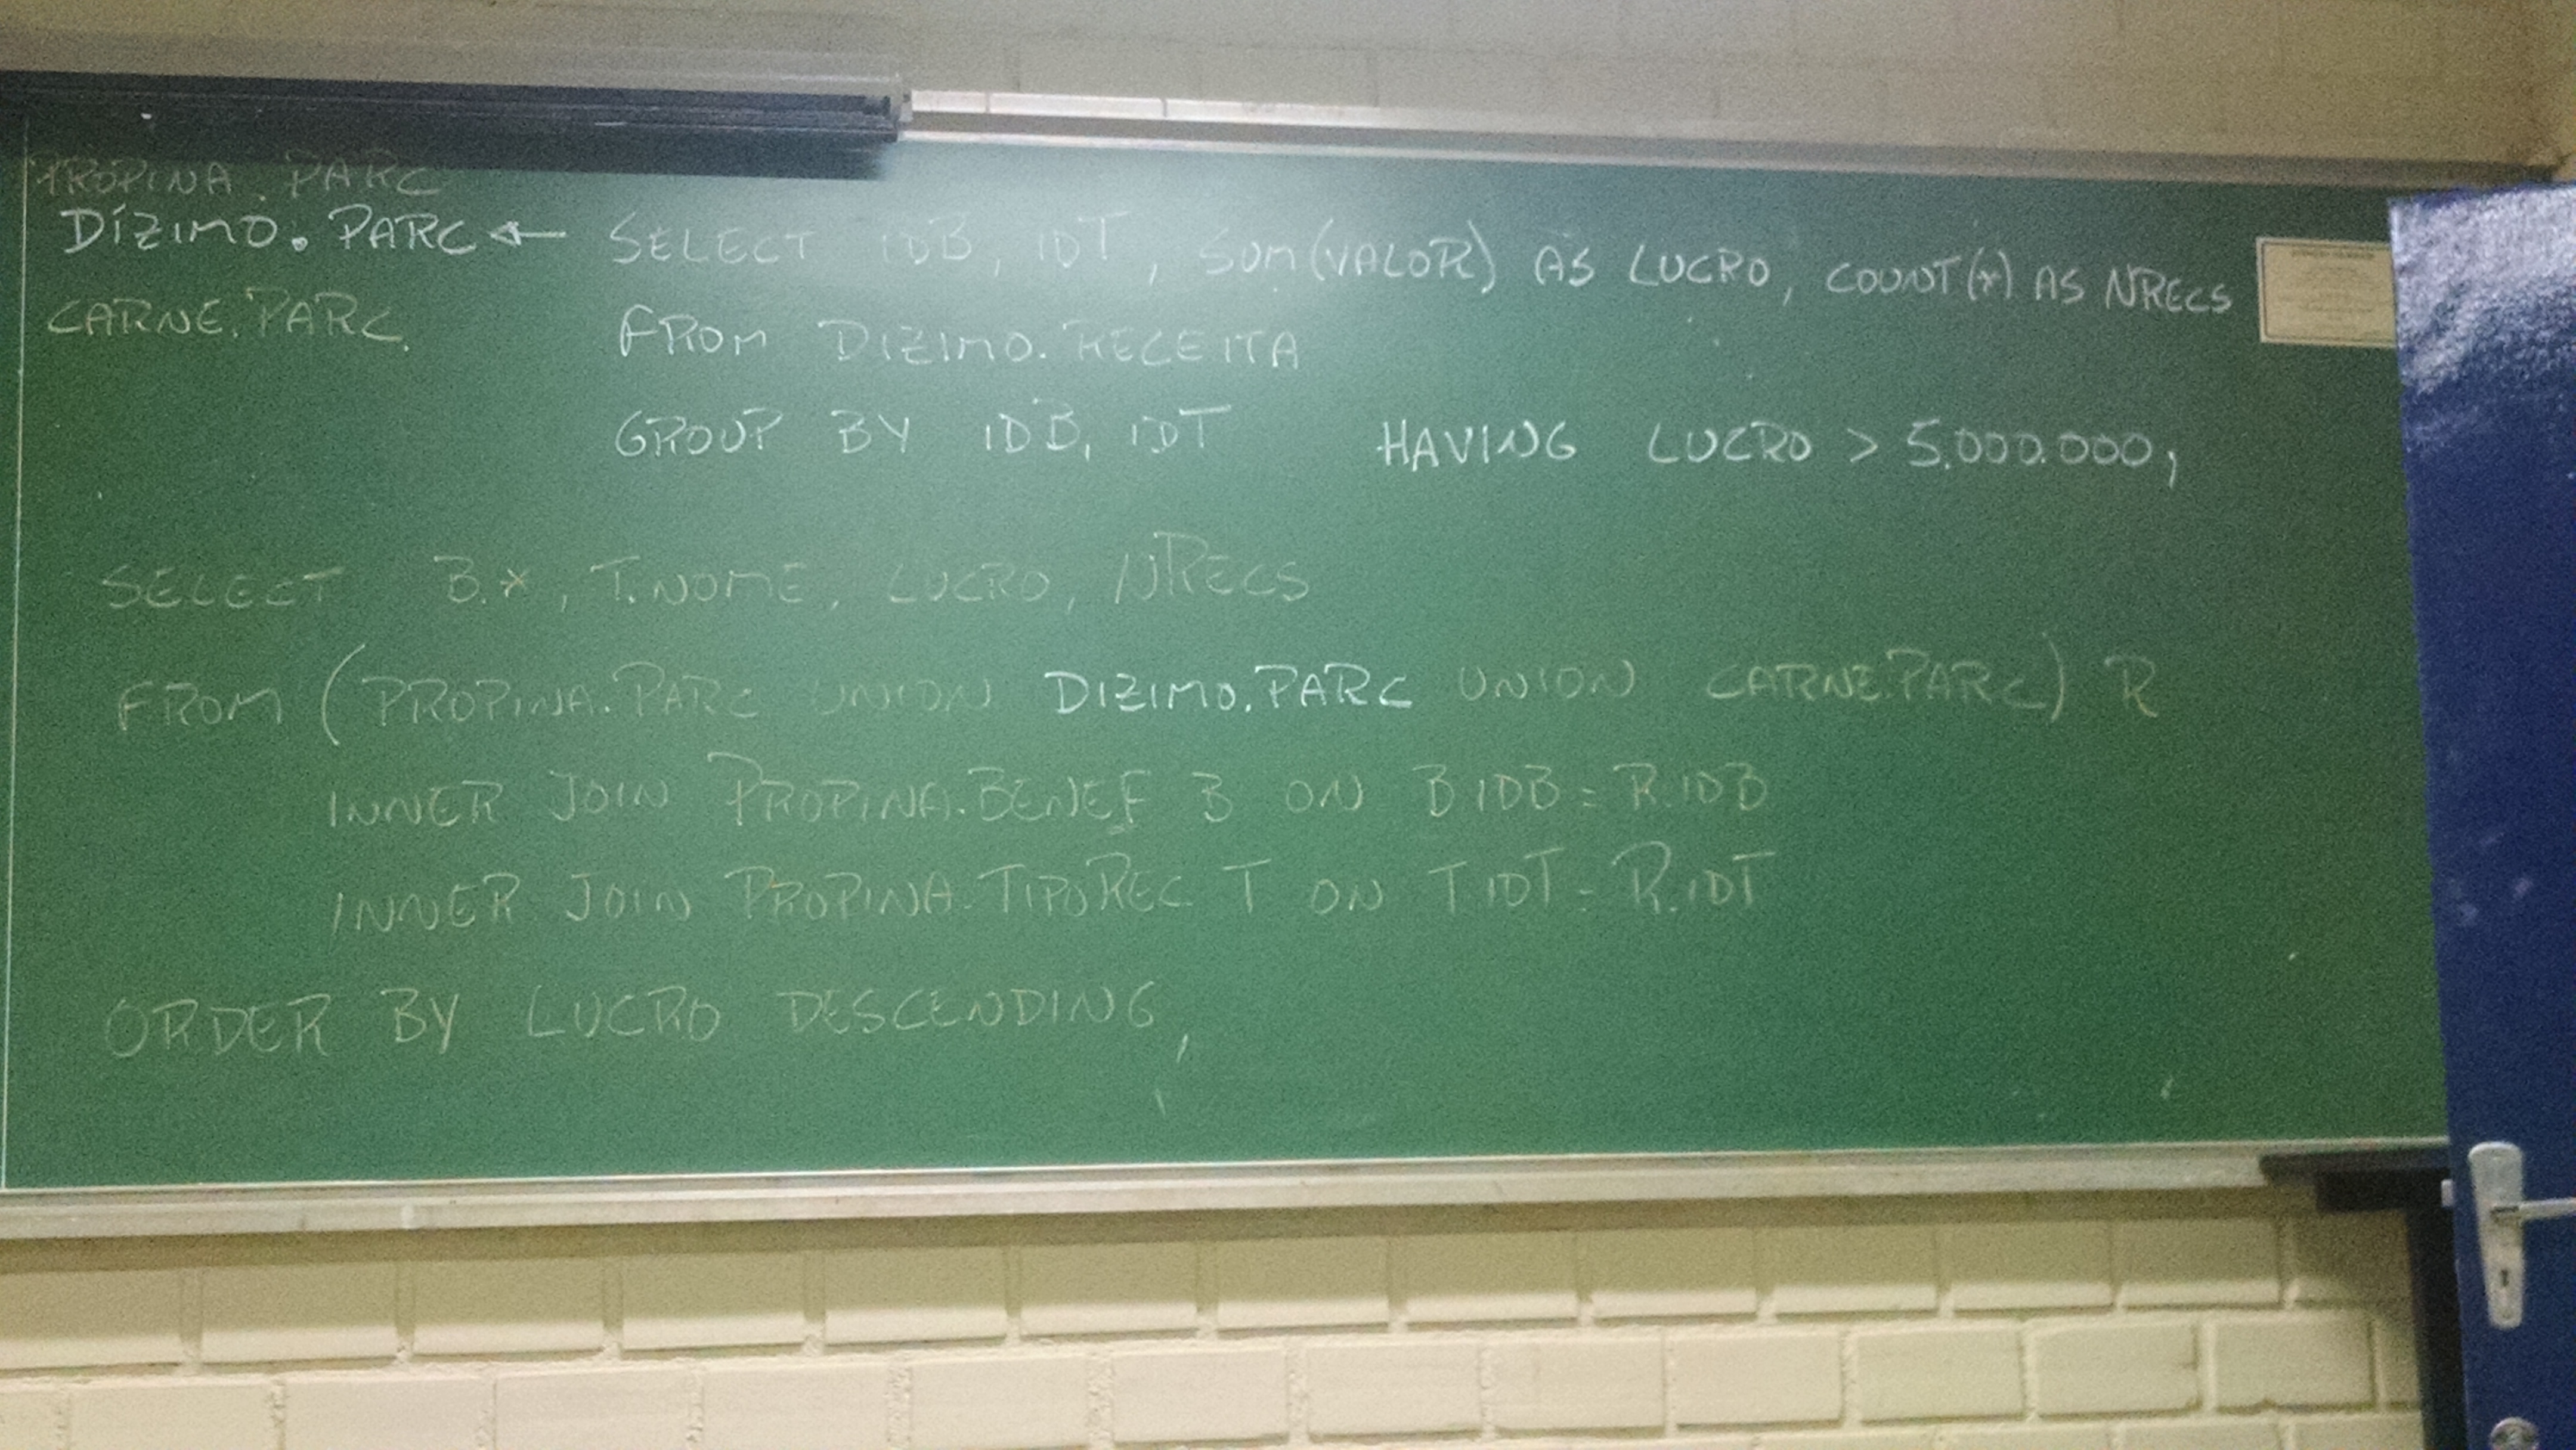 PROPINA.PARC
DÍZIMO.PARC ← SELECT IDB, IDT, SUM(VALOR) AS LUCRO, COUNT(*) AS NRECS
CARNE.PARC. FROM DIZIMO.RECEITA
GROUP BY IDB, IDT HAVING LUCRO > 5.000.000;
SELECT B.*, T.NOME, LUCRO, NRECS
FROM (PROPINA.PARC UNION DIZIMO.PARC UNION CARNE.PARC) R
INNER JOIN PROPINA.BENEF B ON B.IDB = R.IDB
INNER JOIN PROPINA.TIPOREC T ON T.IDT = R.IDT
ORDER BY LUCRO DESCENDING;